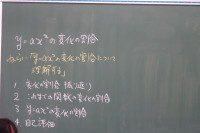 y=ax²の変化の割合
めあて：「y=ax²の変化の割合について
理解する」
1. 変化の割合 振り返り
2. これまでの関数の変化の割合
3. y=ax²の変化の割合
4. 自己評価